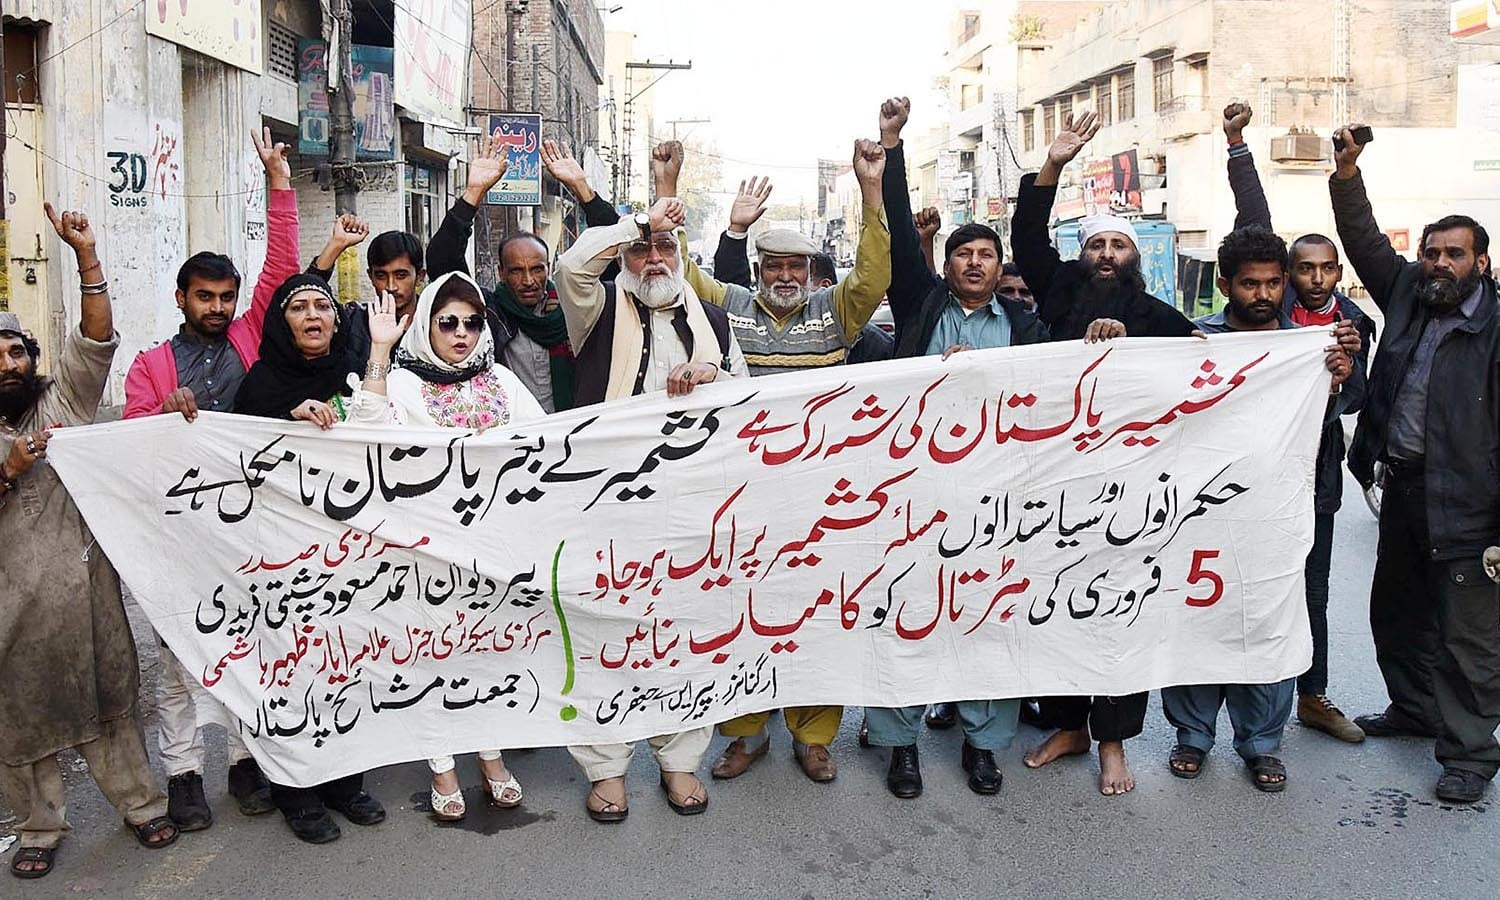 کشمیر پاکستان کی شہ رگ ہے کشمیر کے بغیر پاکستان نا مکمل ہے۔
حکمرانوں اور سیاستدانوں مسئلہ کشمیر پر ایک ہو جاؤ۔
5 - فروری کی ہڑتال کو کامیاب بنائیں۔
آرگنائزر: پیر ایس اے جعفری
مرکزی صدر
پیر دیوان احمد مسعود چشتی فریدی
مرکزی سیکرٹری جنرل علامہ ایاز ظہیر ہاشمی
(جمعت مشائخ پاکستان)
3D
SIGNS
پینٹرز
رینبو